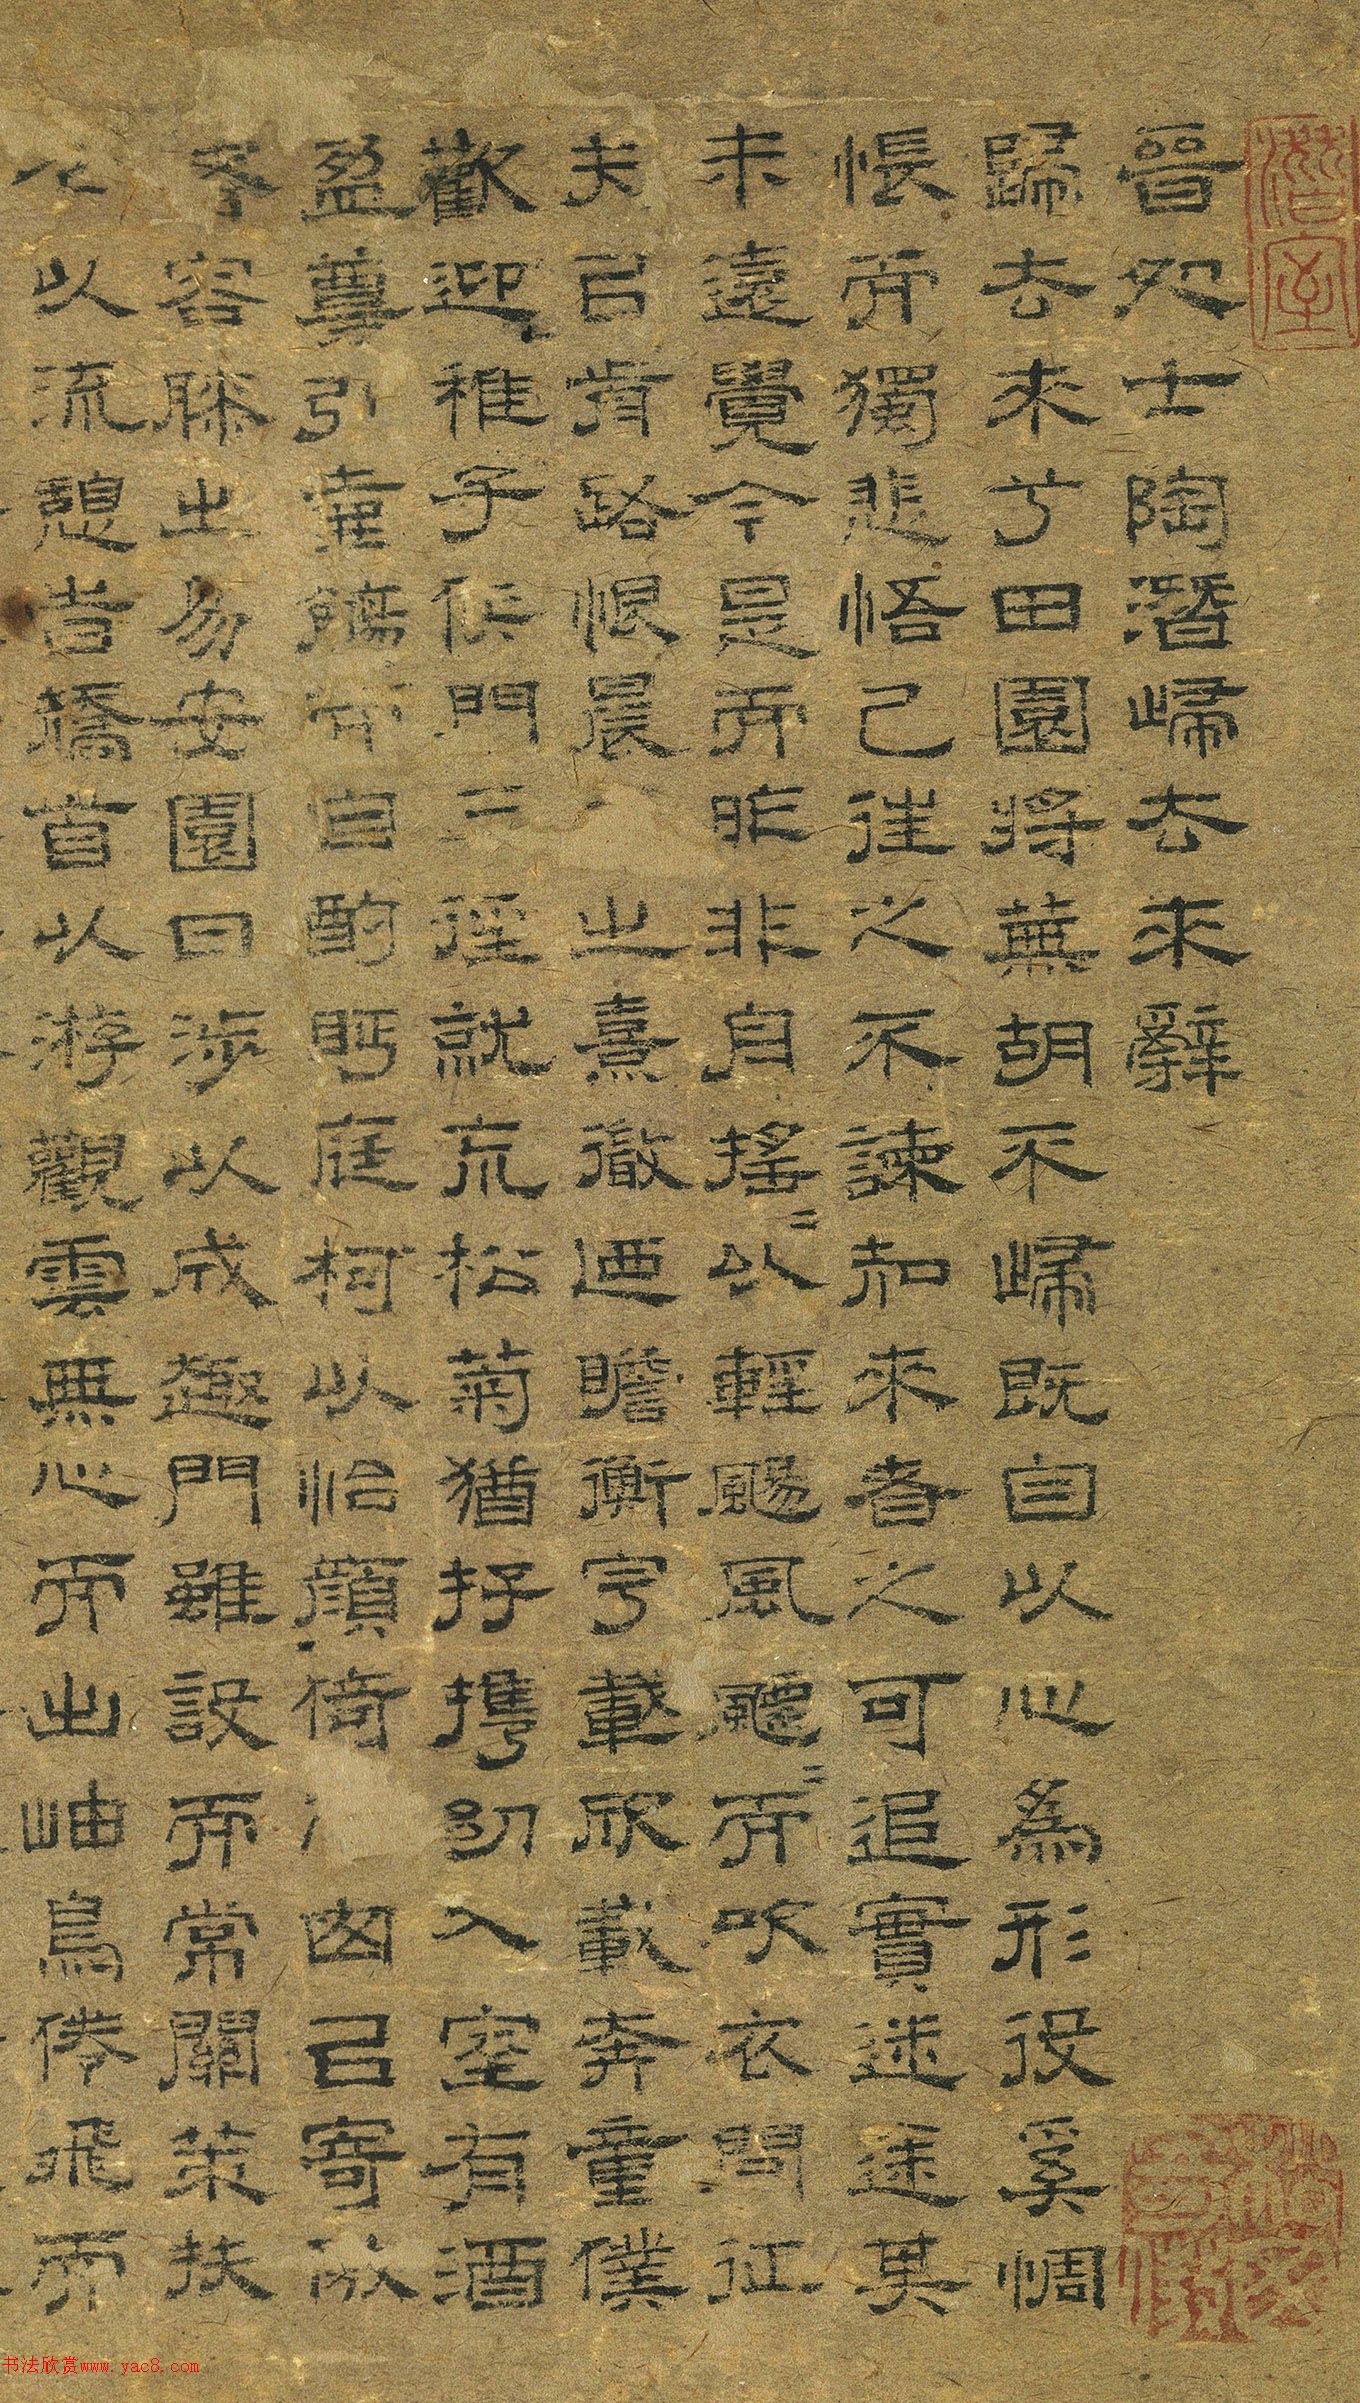 晉処士陶潛歸去來辭
歸去來兮田園將蕪胡不歸既自以心為形役奚惆
悵而獨悲悟已往之不諫知來者之可追實迷途其
未遠覺今是而昨非自搖〻以輕颺風飃〻而吹衣問征
夫已前路恨晨之熹微迺瞻衡宇載欣載奔童僕
歡迎稚子候門三徑就荒松菊猶存携幼入室有酒
盈尊引壺觴而自酌眄庭柯以怡顏倚囪以寄傲
容膝之易安園日涉以成趣門雖設而常關策扶
以流憩時矯首以游觀雲無心而出岫鳥倦飛而
书法欣赏www.yac8.com